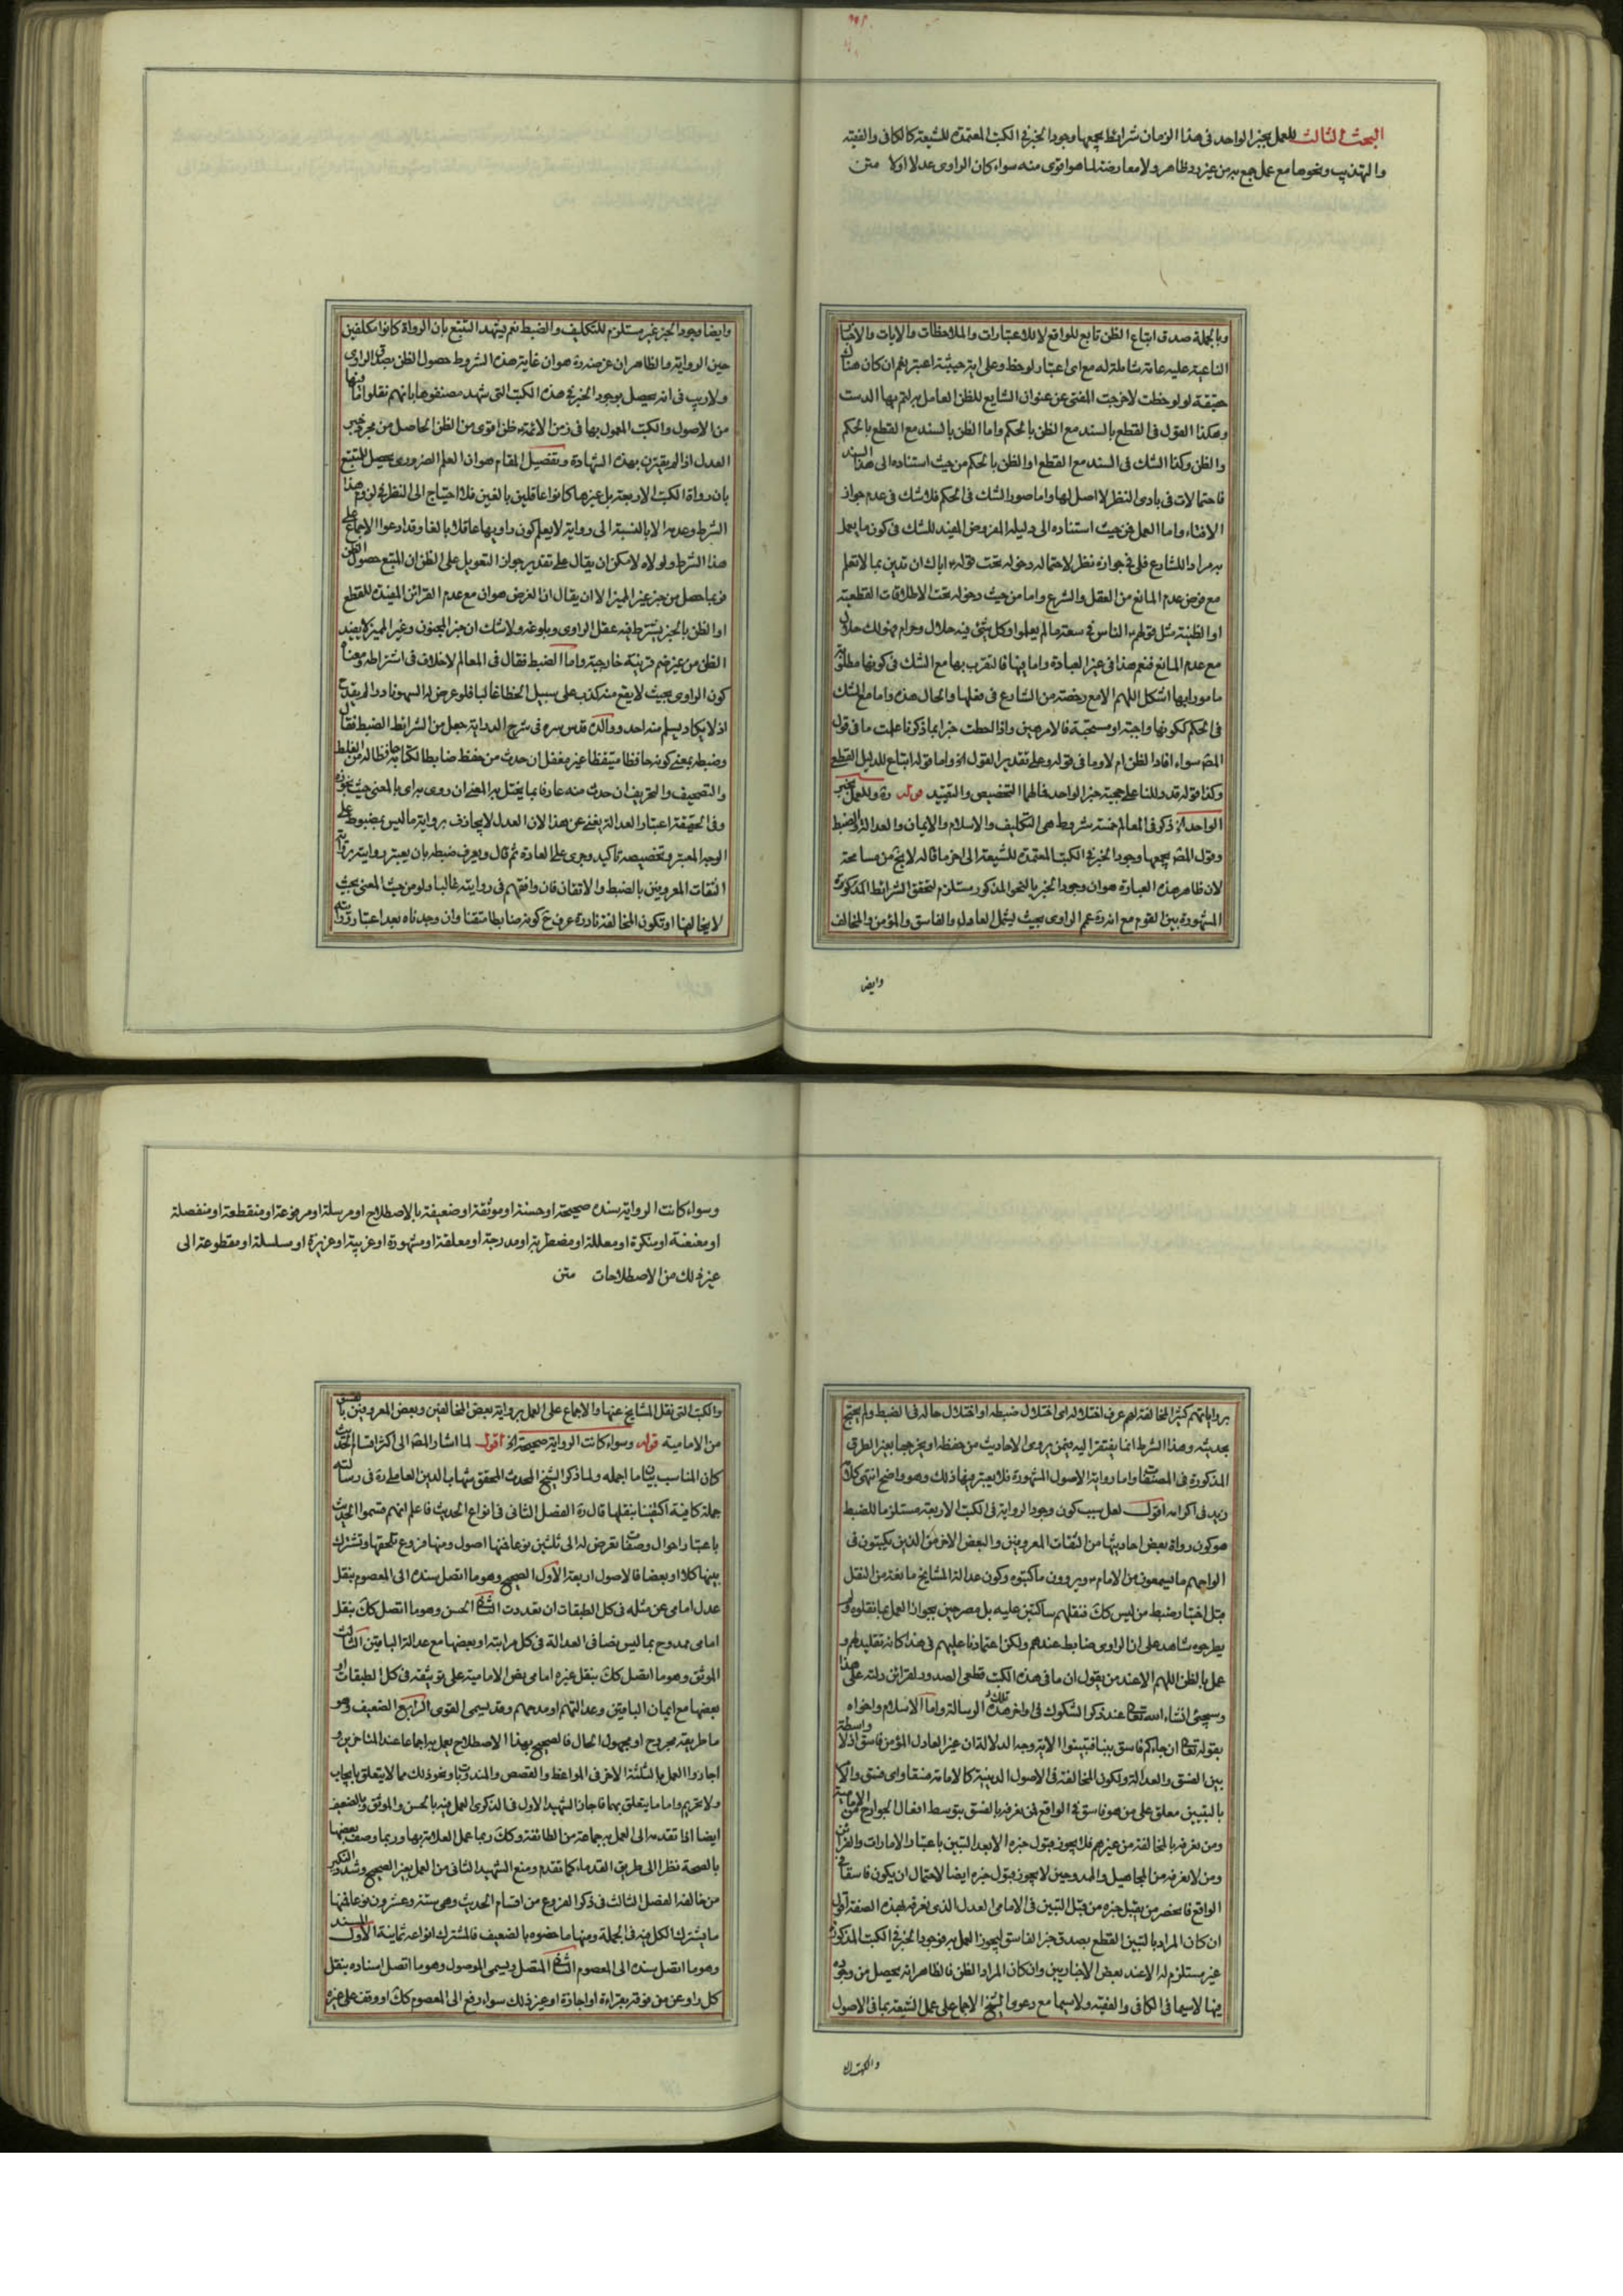 البحث الثالث للعمل بخبر الواحد في هذا الزمان شرائط يجمعها وجود الخبر في الكتب المعتمدة للشيعة كالكافي والفقيه
والتهذيب ونحوها مع عمل جمع به من غير رد ظاهر ولا معارضة لما هو اقوى منه سواء كان الراوي عدلا اولا متن
وبالجملة صدق اتباع الظن تابع للواقع لا للاعتبارات والملاحظات والايات والاخبار
الناعية عليه عامة شاملة له مع اي اعتبار لوحظ وعلى اية حيثية اعتبر نعم ان كان هناك
حقيقة لو لوحظت لاخرجت المفتي عن عنوان الشايع للظن العامل به لتم بها الدست
وهكذا القول في القطع بالسند مع الظن بالحكم واما الظن بالسند مع القطع بالحكم
والظن وكذا الشك في السند مع القطع او الظن بالحكم من حيث استناده الى هذا السند
فاحتمالات في بادي النظر لا اصل لها واما صور الشك في الحكم فلا شك في عدم جواز
الافتاء واما العمل من حيث استناده الى دليله المفروض المفيد للشك في كون ما يعمل
به مراد الشارع فلي في جوازه نظر لاحتمال دخوله تحت قوله اياك ان تدين بما لا تعلم
مع فرض عدم المانع من العقل والشرع واما من حيث دخوله تحت الاطلاقات القطعية
او الظنية مثل قولهم الناس في سعة ما لم يعلموا وكل شئ فيه حلال وحرام فهو لك حلال
مع عدم المانع فنعم هذا في غير العبادة واما فيها فالتقرب بها مع الشك في كونها مطلوبة
مامورا بها اشكل اللهم الا مع رخصة من الشارع في فعلها والحال هذه واما مع الشك
في الحكم لكونها واجبة او مستحبة فالامر هين واذا احطت خبرا بما ذكرنا علمت ما في قول
المص سواء افاد الظن ام لا وما في قوله وعلى تقدير القول الخ واما قوله اتباع للدليل القطع
وكذا قوله قد دللنا على حجية خبر الواحد فالهما التخصيص والتقييد قوله ره وللعمل بخبر
الواحد الخ ذكر في المعالم خمسة شروط هي التكليف والاسلام والايمان والعدالة والضبط
وقول المص يجمعها وجود الخبر في الكتب المعتمدة للشيعة الى اخر ما قاله لا يخ من مسامحة
لان ظاهر هذه العبارة هو ان وجود الخبر بالنحو المذكور مستلزم لتحقق الشرائط المذكورة
المشهورة بين القوم مع انه ره عمم الراوي بحيث ليشمل العادل والفاسق والمؤمن والمخالف
وايض
وايضا وجود الخبر غير مستلزم للتكليف والضبط نعم يشهد التتبع بان الرواة كانوا مكلفين
حين الرواية والظاهر ان غرضه ره هو ان غاية هذه الشروط حصول الظن بصدق الراوي
ولا ريب في انه يحصل بوجود الخبر في هذه الكتب التي شهد مصنفوها بانهم نقلوا ما فيها
من الاصول والكتب المعمول بها في زمن الائمة ظن اقوى من الظن الحاصل من مجرد خبر
العدل اذا لم يقترن بهذه الشهادة وتفصيل المقام هو ان العلم الضروري يحصل للمتتبع
بان رواة الكتب الاربعة بل غيرها كانوا عاقلين بالغين فلا احتياج الى النظر في لزوم هذا
الشرط وعدمه الا بالنسبة الى رواية لا يعلم كون راويها عاقلا بالغا وقد ادعوا الاجماع على
هذا الشرط ولولاه لامكن ان يقال على تقدير جواز التعويل على الظن ان المتبع حصول الظن
فربما حصل من خبر غير المميز الا ان يقال ان الغرض هو ان مع عدم القرائن المفيدة للقطع
او الظن بالخبر يشترط فيه عقل الراوي وبلوغه ولا شك ان خبر المجنون وغير المميز لا يفيد
الظن من غير ضم قرينة خارجية واما الضبط فقال في المعالم لا خلاف في اشتراطه ومعناه
كون الراوي بحيث لا يقع منه كذب على سبيل الخطا غالبا فلو عرض له السهو نادرا لم يقدح
اذ لا يكاد يسلم منه احد ووالده قدس سره في شرح الدراية جعل من الشرائط الضبط فقال
وضبطه بمعنى كونه حافظا متيقظا غير مغفل ان حدث من حفظه ضابطا لكتابه حافظا له من الغلط
والتصحيف والتحريف ان حدث منه عارفا بما يختل به المعنى ان روى به اي بالمعنى حيث نجوزه
وفي الحقيقة اعتبار العدالة يغني عن هذا لان العدل لا يجازف برواية ما ليس بمضبوط على
الوجه المعتبر وتخصيصه تاكيد وجرى على العادة ثم قال ويعرف ضبطه بان يعتبر روايته برواية
الثقات المعروفين بالضبط والاتقان فان وافقهم في روايته غالبا ولو من حيث المعنى بحيث
لا يخالفها او تكون المخالفة نادرة عرف ح كونه ضابطا متقنا وان وجدناه بعد اعتبار روايته
برواياتهم كثير المخالفة لهم عرف اختلاله اي اختلال ضبطه او اختلال حاله في الضبط ولم يحتج
بحديثه وهذا الشرط انما يفتقر اليه فيمن يروي الاحاديث من حفظه او يخرجها بغير الطرق
المذكورة في المصنفات واما رواية الاصول المشهورة فلا يعتبر فيها ذلك وهو واضح انتهى كلامه
زيد في اكرامه اقول لعل سبب كون وجود الرواية في الكتب الاربعة مستلزما للضبط
هو كون رواة بعض احاديثها من الثقات المعروفين والبعض الاخر من الذين يكتبون في
الواحهم ما يسمعون من الامام ويروون ما كتبوه وكون عدالة المشايخ مانعة من النقل
مثل اخبار ضبط من ليس كك فنقلهم ساكتين عليه بل مصرحين بجواز العمل بما نقلوه ولم
يطرحوه شاهد على ان الراوي ضابط عندهم ولكن اعتمادنا عليهم في هذا كانه تقليد لهم و
عمل بالظن اللهم الا عند من يقول ان ما في هذه الكتب قطعي الصدور لقرائن دلته على هذا
وسيجئ انشاء الله تعالى عند ذكر الشكوك في اواخر تلك الرسالة واما الاسلام واخواه
بقوله تعالى ان جاءكم فاسق بنبأ فتبينوا الاية وجه الدلالة ان غير العادل المؤمن فاسق اذ لا واسطة
بين الفسق والعدالة ولكون المخالفة في الاصول الدينية كالامامة فسقا واي فسق والامر
بالتبيين معلق على من هو فاسق في الواقع فمن نعرفه بالفسق بتوسط افعال الجوارح من الامامية
ومن نعرفه بالمخالفة من غيرهم فلا يجوز قبول خبره الا بعد التبين باعتبار الامارات والقرائن
ومن لا نعرفه من المجاهيل والممدوحين لا يجوز قبول خبره ايضا لاحتمال ان يكون فاسقا في
الواقع فانحصر من يقبل خبره من قبل التبين في الامامي العدل الذي نعرفه بهذه الصفة اقول
ان كان المراد بالتبين القطع بصدق خبر الفاسق ليجوز العمل به فوجود الخبر في الكتب المذكورة
غير مستلزم له الا عند بعض الاخباريين وان كان المراد الظن فالظاهر انه يحصل من وجوده
فيها لاسيما في الكافي والفقيه ولاسيما مع دعوى الشيخ الاجماع على عمل الشيعة بما في الاصول
والكتب ال
وسواء كانت الرواية بسنده صحيحة او حسنة او موثقة او ضعيفة بالاصطلاح او مرسلة او مرفوعة او منقطعة او منفصلة
او معنعنة او منكرة او معللة او مضطربة او مدرجة او معلقة او مشهورة او غريبة او عزيزة او مسلسلة او مقطوعة الى
غير ذلك من الاصطلاحات متن
والكتب التي نقل المشايخ عنها والاجماع على العمل برواية بعض المخالفين وبعض المعروفين بالفسق
من الامامية قوله وسواء كانت الرواية صحيحة الخ اقول لما اشار المص الى اكثر اقسام الحديث
كان المناسب بيان ما اجمله ولما ذكر الشيخ المحدث المحقق شهاب الدين العاملي ره في رسالته
جملة كافية اكتفينا بنقلها قال ره الفصل الثاني في انواع الحديث فاعلم انهم قسموا الحديث
باعتبار احوال وصفات تعرض له الى ثلثين نوعا فمنها اصول ومنها فروع تلحقها وتشترك
بينها كلا او بعضا فالاصول اربعة الاول الصحيح وهو ما اتصل سنده الى المعصوم بنقل
عدل امامي عن مثله في كل الطبقات ان تعددت الثاني الحسن وهو ما اتصل كك بنقل
امامي ممدوح بما ليس نصا في العدالة في كل مراتبه او بعضها مع عدالة الباقين الثالث
الموثق وهو ما اتصل كك بنقل غير امامي نص الامامية على توثيقه في كل الطبقات او
بعضها مع ايمان الباقين وعدالتهم او مدحهم وقد يسمى القوي الرابع الضعيف وهو
ما طريقه مجروح او مجهول الحال فالصحيح بهذا الاصطلاح يعمل به اجماعا عند المتاخرين و
اجازوا العمل بالثلثة الاخر في المواعظ والقصص والمندوبات ونحو ذلك مما لا يتعلق بايجاب
ولا تحريم واما ما يتعلق بهما فاجاز الشهيد الاول في الذكرى العمل فيه بالحسن والموثق وبالضعيف
ايضا اذا تقدمه الى العمل به جماعة من الطائفة وكك ربما عمل العلامة بها وربما وصف بعضها
بالصحة نظرا الى طريق القدماء كما تقدم ومنع الشهيد الثاني من العمل بغير الصحيح وشدد النكير
من خالفه الفصل الثالث في ذكر الفروع من اقسام الحديث وهي ستة وعشرون نوعا فمنها
ما يشترك الكل فيه في الجملة ومنها ما خصوه بالضعيف فالمشترك انواعه ثمانية الاول المسند
وهو ما اتصل سنده الى المعصوم الثاني المتصل ويسمى الموصول وهو ما اتصل اسناده بنقل
كل راو عن من فوقه بقراءة او اجازة او غير ذلك سواء رفع الى المعصوم كك او وقف على غيره